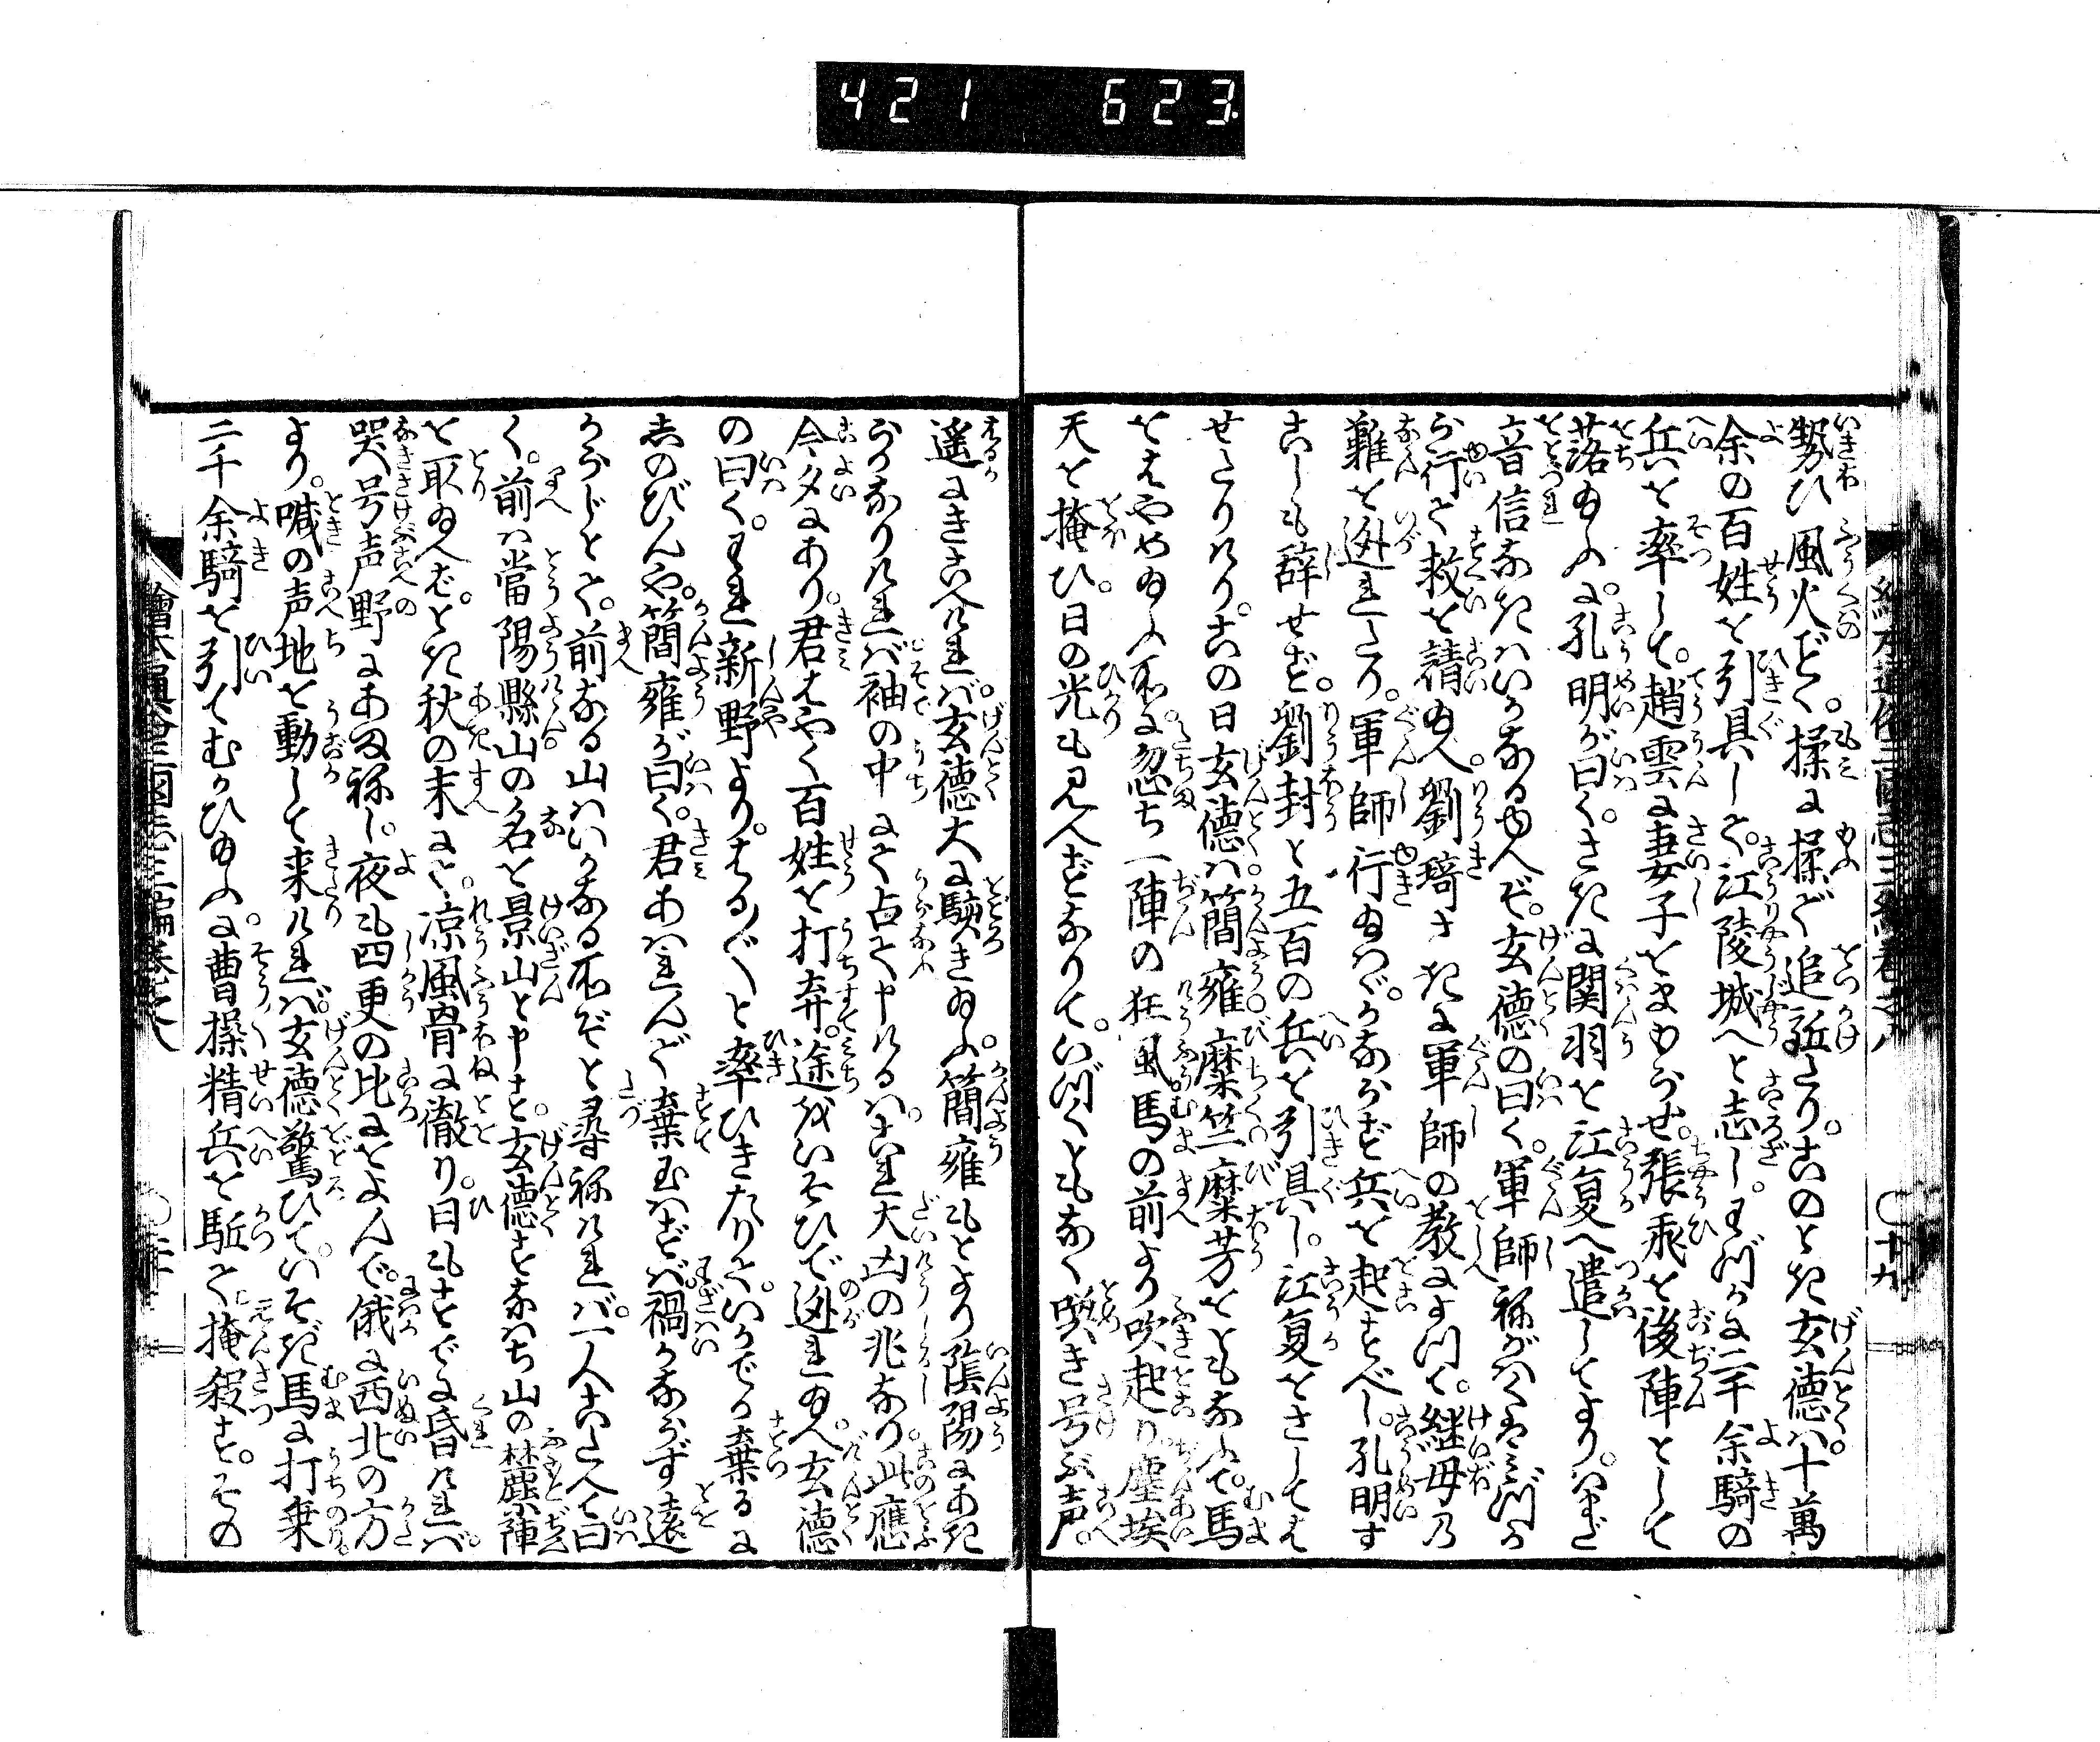 421 623
勢ひ風火のどく。揉に揉で追駈たり。このとき玄徳は。十萬
余の百姓を引具して。江陵城へと志し。わづかに二千余騎の
兵を率して。趙雲に妻子をまもらせ。張飛を後陣として
落ゆふに。孔明が曰く。さきに関羽を江夏へ遣してより。いまだ
音信なきはいかなるゆへぞ。玄徳の曰く。軍師ねがはくはみづか
ら行て救を請ゆへ。劉琦さきに軍師の教によつて。継母の
難を逃れたり。軍師行ゆはゞ。かならず兵を起すべし。孔明す
こしも辞せず。劉封と五百の兵を引具し。江夏をさしては
せたりけり。この日玄徳は簡雍麋竺麋芳をともなふて。馬
をはやめゆふ所に忽ち一陣の狂風馬の前より吹起り。塵埃
天を掩ひ。日の光も見へずなりて。いづくともなく哭き号ぶ声。
遥にきこへければ。玄徳大に駭きゆふ。簡雍もとより陰陽にあき
らかなりければ袖の中にて占て申けるは。これ大凶の兆なり。此應
今夕にあり。君はやく百姓を打弃。途をいそひで逃れゆへ。玄徳
の曰く。われ新野より。はる〴〵と率ひきたりて。いかでか棄るに
しのびんや。簡雍が曰く。君あはれんで棄玉はずば。禍かならず遠
からじとて。前なる山はいかなる所ぞと尋ねければ。一人こたへて曰
く。前は當陽縣山の名を景山と申す。玄徳すなはち山の麓に陣
を取ゆへば。とき秋の末にて。凉風骨に徹り。日もすでに昏ければ。
哭号声野にあまねし。夜も四更の比におよんで。俄に西北の方
より。喊の声地を動して来ければ。玄徳驚ひて。いそぎ馬に打乗
二千余騎を引てむかひゆふに。曹操精兵を駈て掩殺す。その
繪本通俗三國志三編卷之八
十九